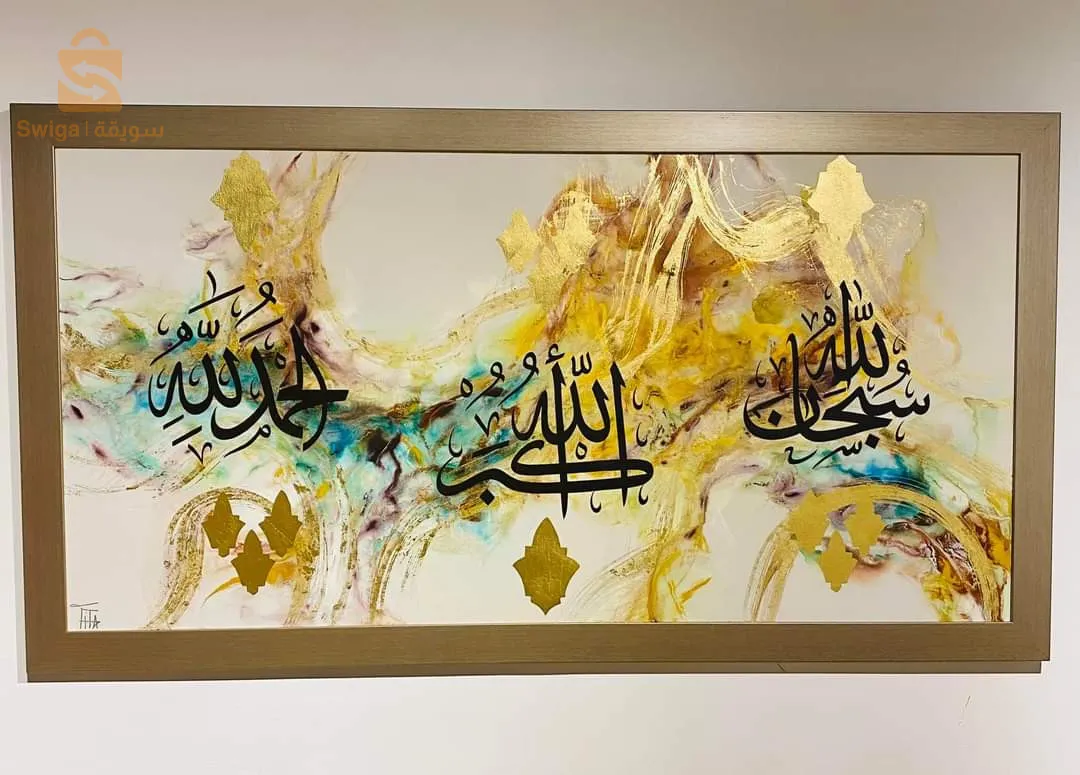 Swiga | سويقة
سبحان الله
الله أكبر
الحمد لله
TiTA